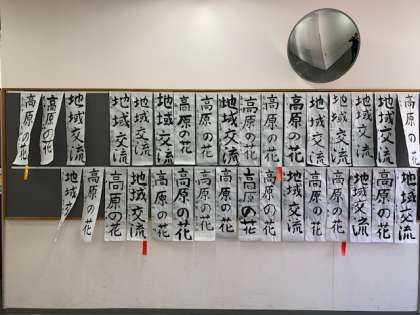 高原の花
地域交流
地域交流
地域交流
地域交流
高原の花
高原の花
高原の花
地域交流
高原の花
高原の花
地域交流
地域交流
地域交流
地域交流
高原の花
高原の花
地域交流
高原の花
地域交流
地域交流
高原の花
地域交流
高原の花
高原の花
高原の花
高原の花
高原の花
高原の花
地域交流
高原の花
高原の花
地域交流